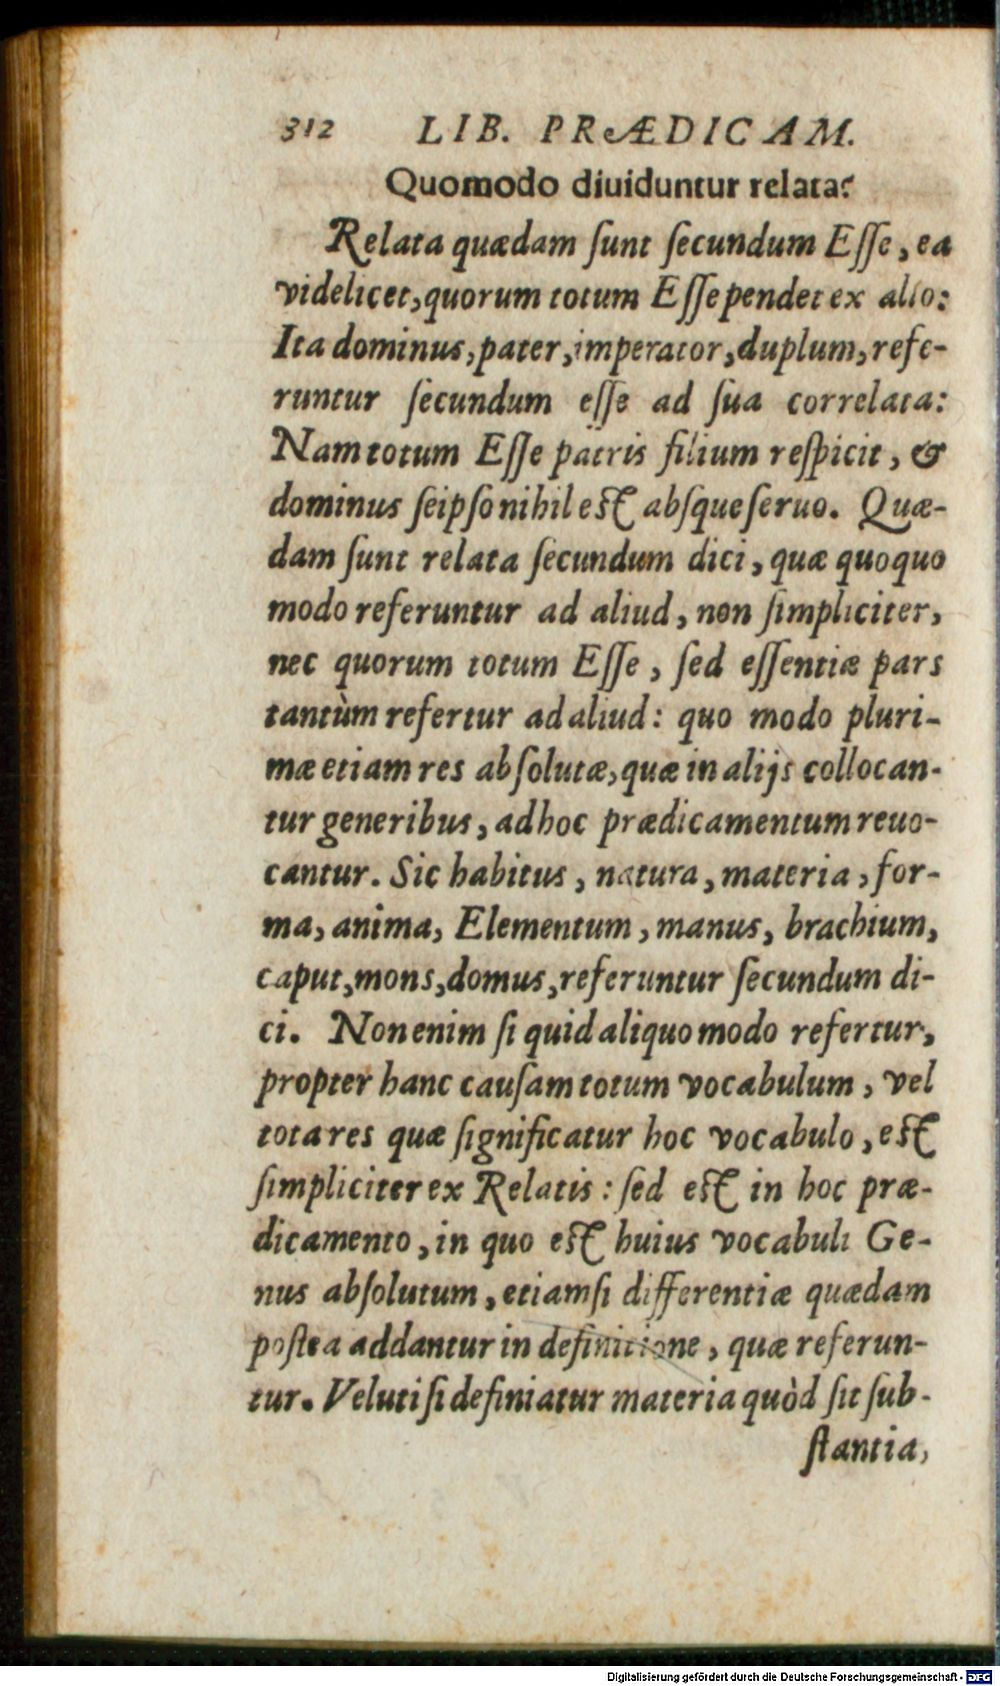 312 LIB. PRÆDICAM.
Quomodo diuiduntur relata?
Relata quædam sunt secundum Esse, ea
videlicet, quorum totum Esse pendet ex alio:
Ita dominus, pater, imperator, duplum, refe-
runtur secundum esse ad sua correlata:
Nam totum Esse patris filium respicit, &
dominus seipso nihil est absque seruo. Quæ-
dam sunt relata secundum dici, quæ quoquo
modo referuntur ad aliud, non simpliciter,
nec quorum totum Esse, sed essentiæ pars
tantùm refertur ad aliud: quo modo pluri-
mæ etiam res absolutæ, quæ in alijs collocan-
tur generibus, ad hoc prædicamentum reuo-
cantur. Sic habitus, natura, materia, for-
ma, anima, Elementum, manus, brachium,
caput, mons, domus, referuntur secundum di-
ci. Non enim si quid aliquo modo refertur,
propter hanc causam totum vocabulum, vel
tota res quæ significatur hoc vocabulo, est
simpliciter ex Relatis: sed est in hoc præ-
dicamento, in quo est huius vocabuli Ge-
nus absolutum, etiamsi differentiæ quædam
postea addantur in definitione, quæ referun-
tur. Veluti si definiatur materia quòd sit sub-
stantia,
Digitalisierung gefördert durch die Deutsche Forschungsgemeinschaft - DFG